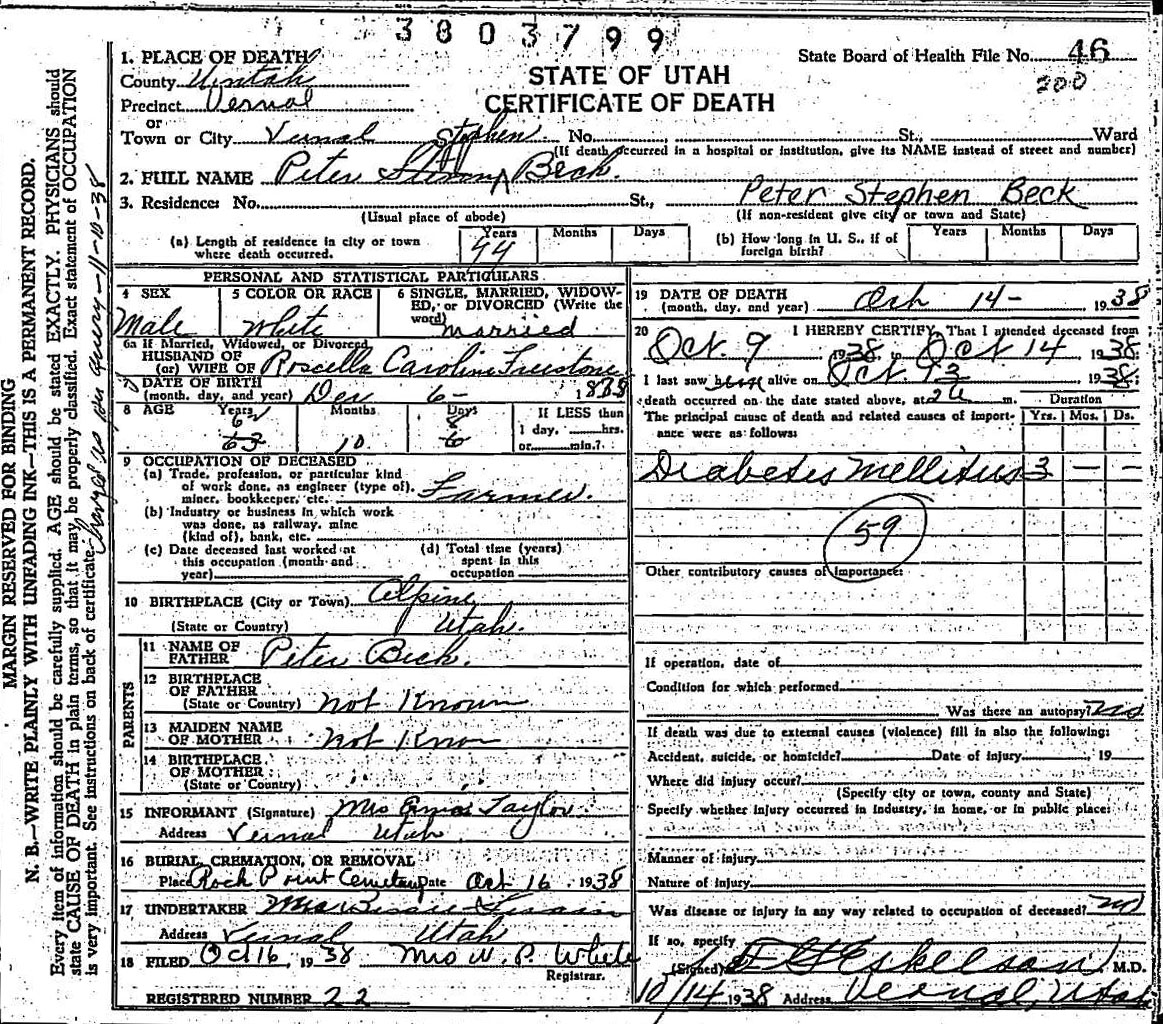 3803799
1. PLACE OF DEATH
State Board of Health File No. 46
200
County Uintah
STATE OF UTAH
CERTIFICATE OF DEATH
Precinct Vernal
or
Town or City Vernal No. St., Ward
(If death occurred in a hospital or institution, give its NAME instead of street and number)
Stephen
2. FULL NAME Peter Beck.
3. Residence: No. St., Peter Stephen Beck
(Usual place of abode) (If non-resident give city or town and State)
(a) Length of residence in city or town where death occurred. Years 44 Months Days
(b) How long in U. S., if of foreign birth? Years Months Days
PERSONAL AND STATISTICAL PARTICULARS
4 SEX Male
5 COLOR OR RACE White
6 SINGLE, MARRIED, WIDOWED, or DIVORCED (Write the word) married
6a If Married, Widowed, or Divorced
HUSBAND OF
(or) WIFE OF Roscella Caroline Freestone
7 DATE OF BIRTH
(month, day, and year) Dec 6-
8 AGE Years 62 63 Months 10 Days 8 6
If LESS than 1 day, hrs. or min.?
9 OCCUPATION OF DECEASED
(a) Trade, profession, or particular kind
of work done, as engineer (type of),
miner, bookkeeper, etc. Farmer.
(b) Industry or business in which work
was done, as railway, mine
(kind of), bank, etc.
(c) Date deceased last worked at
this occupation (month and
year)
(d) Total time (years)
spent in this
occupation
10 BIRTHPLACE (City or Town) Alpine
(State or Country) Utah.
PARENTS
11 NAME OF
FATHER Peter Beck.
12 BIRTHPLACE
OF FATHER
(State or Country) not Known
13 MAIDEN NAME
OF MOTHER not Know
14 BIRTHPLACE
OF MOTHER
(State or Country) " "
15 INFORMANT (Signature) Mrs Taylor
Address Vernal Utah
16 BURIAL, CREMATION, OR REMOVAL
Place Rock Point Cemetery Date Oct 16, 1938
17 UNDERTAKER
Address Vernal Utah
18 FILED Oct 16, 1938 Mrs W. P. White
Registrar.
REGISTERED NUMBER 22
19 DATE OF DEATH
(month, day, and year) Oct 14- 1938
20 I HEREBY CERTIFY, That I attended deceased from
Oct. 9 1938 to Oct 14 1938
I last saw alive on Oct. 1938
death occurred on the date stated above, at m. Duration
The principal cause of death and related causes of importance were as follows: Yrs. Mos. Ds.
Diabetes Mellitus 3 - -
59
Other contributory causes of importance:
If operation, date of
Condition for which performed
Was there an autopsy? no
If death was due to external causes (violence) fill in also the following:
Accident, suicide, or homicide? Date of injury , 19
Where did injury occur?
(Specify city or town, county and State)
Specify whether injury occurred in industry, in home, or in public place:
Manner of injury
Nature of injury
Was disease or injury in any way related to occupation of deceased? no
If so, specify
(Signed) Eskelson, M.D.
10/14 1938 Address Vernal, Utah
MARGIN RESERVED FOR BINDING
N. B.—WRITE PLAINLY WITH UNFADING INK—THIS IS A PERMANENT RECORD.
Every item of information should be carefully supplied. AGE should be stated EXACTLY. PHYSICIANS should
state CAUSE OF DEATH in plain terms, so that it may be properly classified. Exact statement of OCCUPATION
is very important. See instructions on back of certificate. Changed as per query—11-10-38